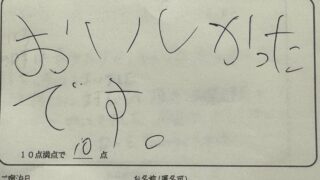 おいしかった
です。
10点満点で 10 点
ご宿泊日 お名前(匿名可)